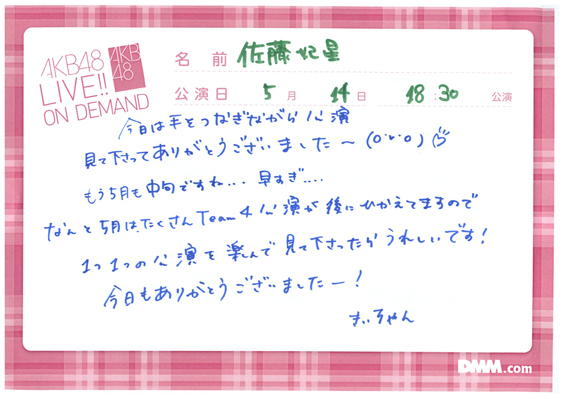 AKB48
LIVE!!
ON DEMAND
AKB
48
名 前 佐藤妃星
公演日 5月 14日 18:30 公演
今日は手をつなぎながら公演
見て下さってありがとうございました〜(o・v・o)
もう5月も中旬ですね... 早すぎ....
なんと5月は、たくさんTeam4公演が後にひかえてますので
1つ1つの公演を楽しんで見て下さったらうれしいです!
今日もありがとうございましたー!
きぃちゃん
DMM.com